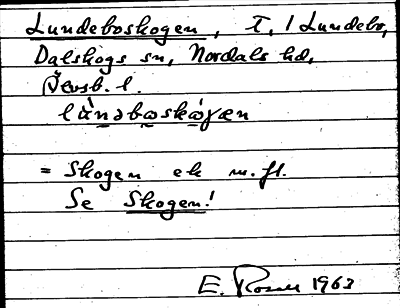 Lundeboskogen, T, 1 Lundebo,
Dalskogs sn, Nordals hd,
Älvsb. l.
lùndboskógæn
= Skogen ek m.fl.
Se Skogen!
E. 1963